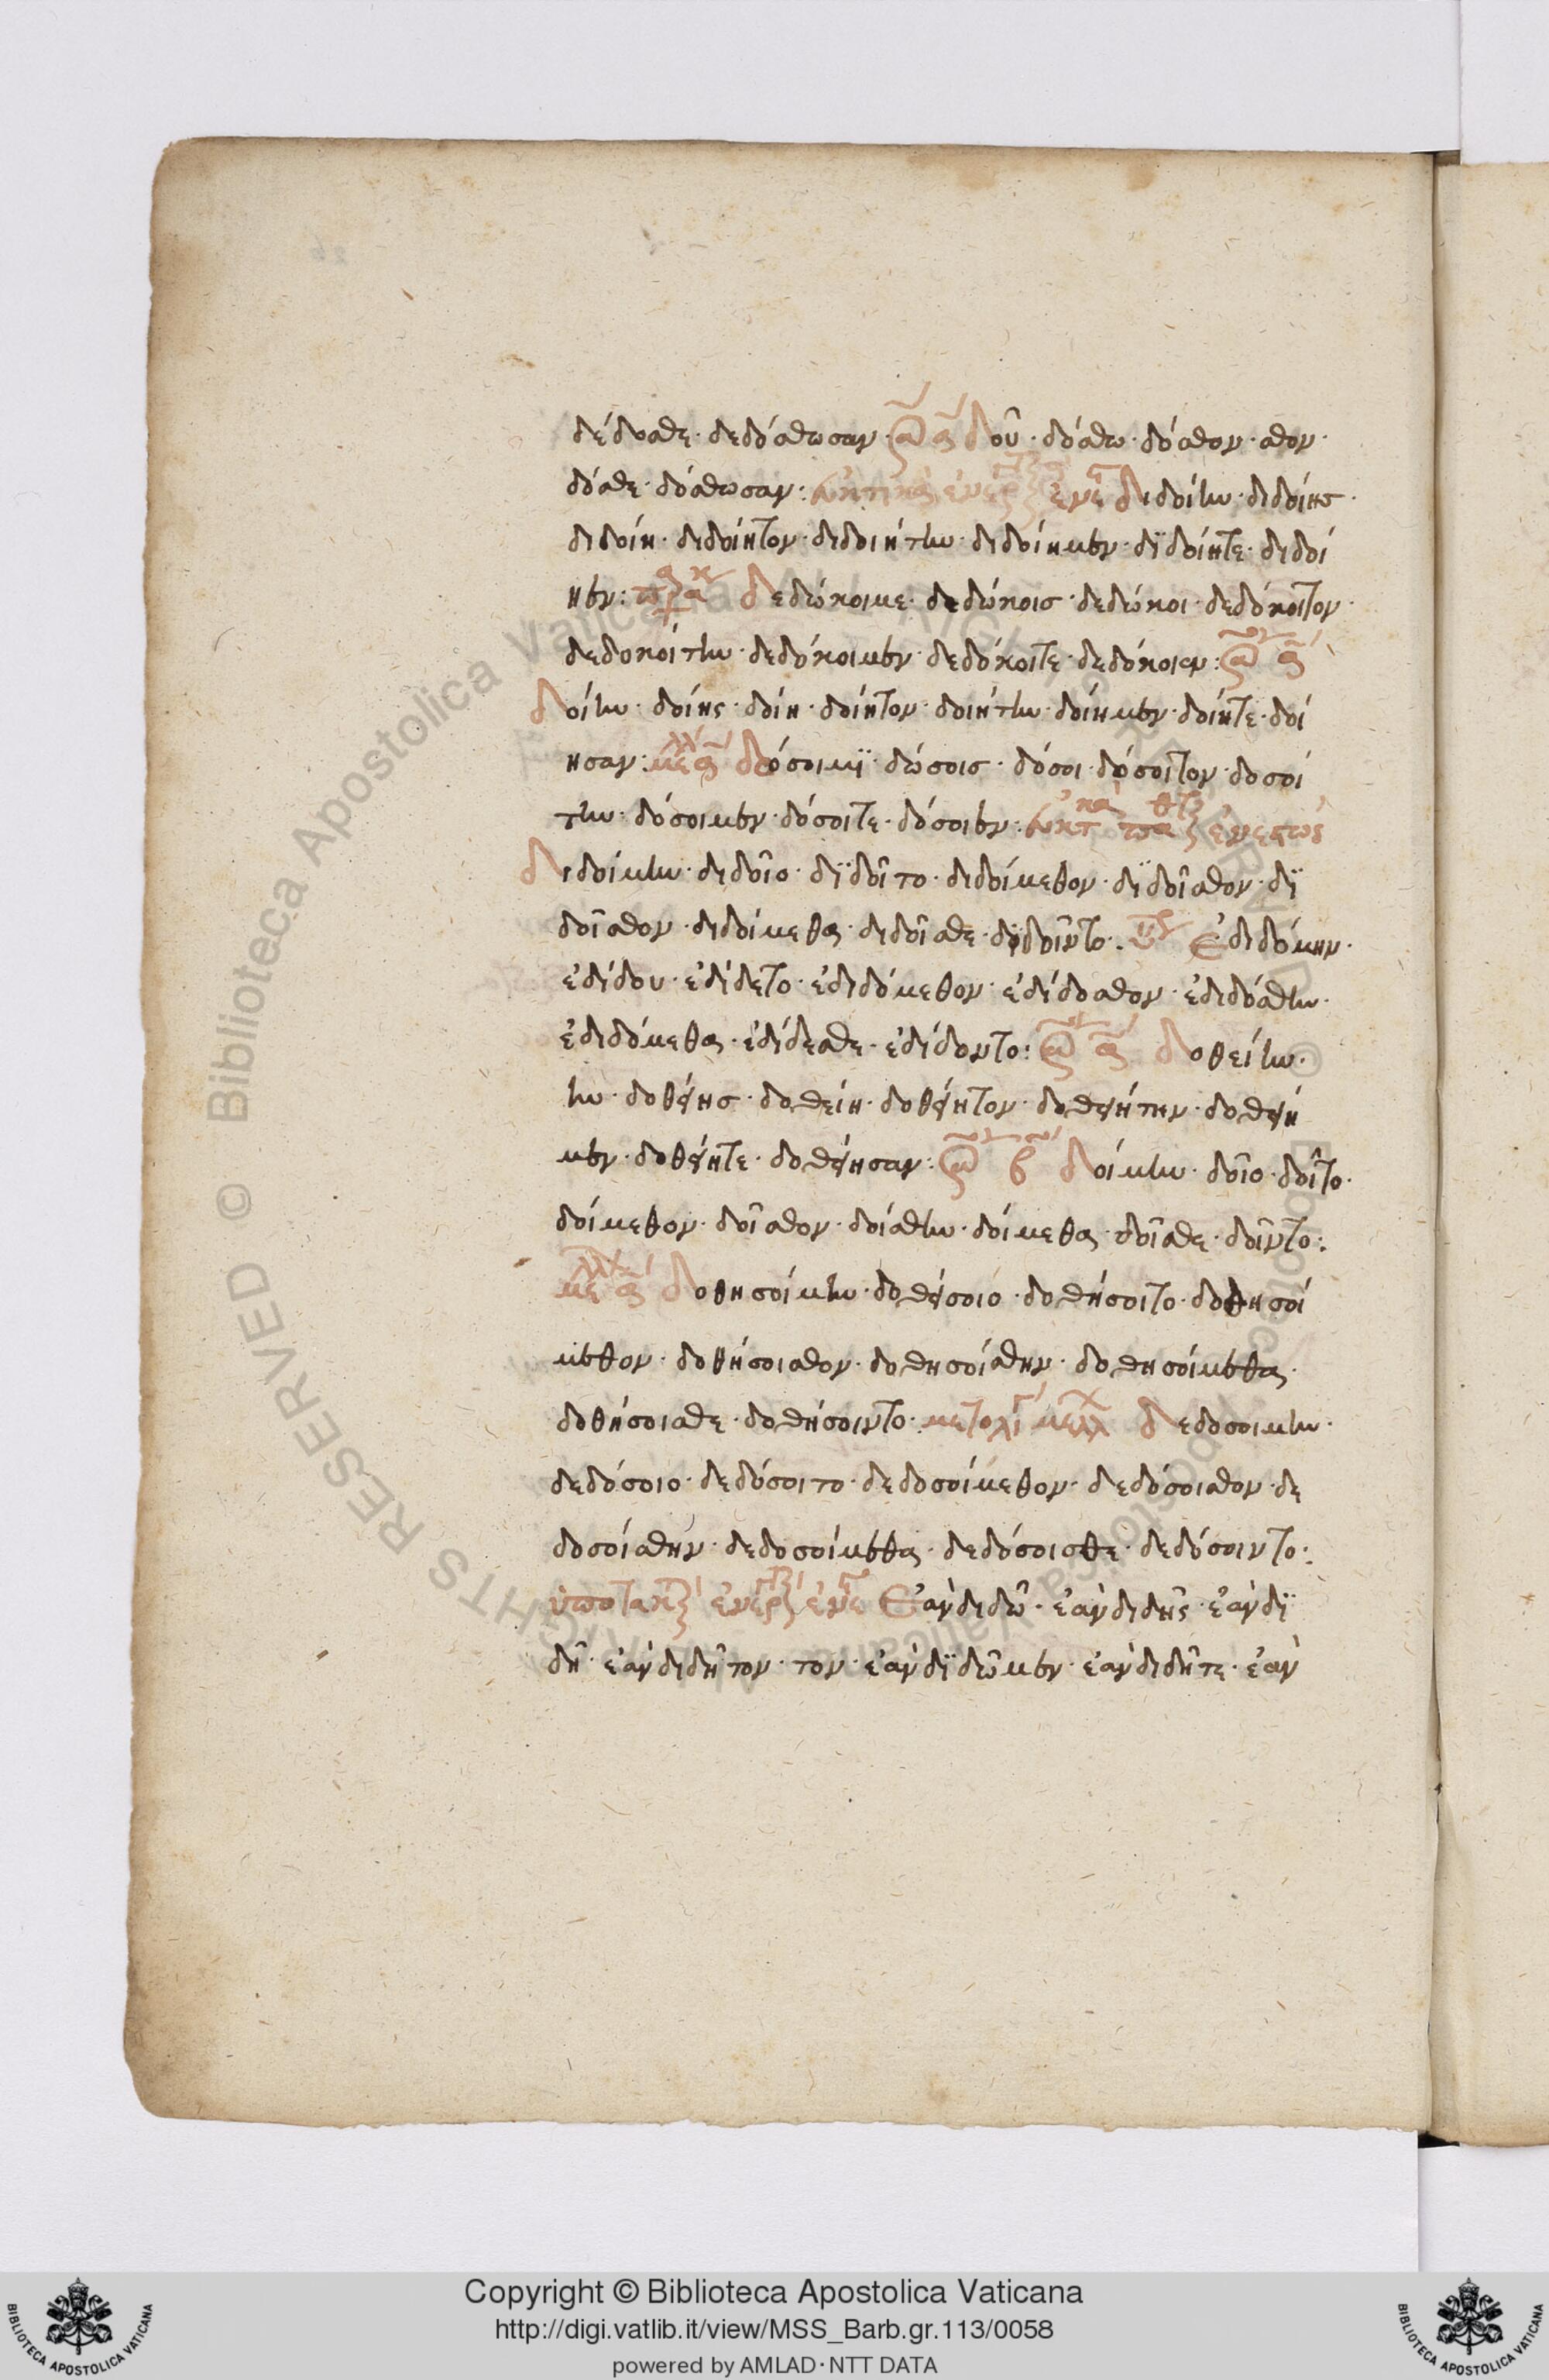 δέδοσθε· δεδόσθωσαν· δοῦ· δόσθω· δόσθον· σθον·
δόσθε· δόσθωσαν: διδοίην· διδοίης·
διδοίη· διδοίητον· διδοιήτην· διδοίημεν· δϊδοίητε· διδοί
ησαν: δεδώκοιμι· δεδώκοις· δεδώκοι· δεδόκοιτον·
δεδοκοίτην· δεδόκοιμεν· δεδόκοιτε· δεδόκοιεν:
δοίην· δοίης· δοίη· δοίητον· δοιήτην· δοίημεν· δοίητε· δοί
ησαν: δόσοιμϊ· δώσοις· δόσοι· δόσοιτον· δοσοί
την· δόσοιμεν· δόσοιτε· δόσοιεν: ἐνεστώς
διδοίμην· διδοῖο· δϊδοῖτο· διδοίμεθον· δϊδοῖσθον· δϊ
δοῖσθον· διδοίμεθα· διδοῖσθε· διδοῖντο· ἐδιδόμην·
ἐδίδου· ἐδίδετο· ἐδιδόμεθον· ἐδίδοσθον· ἐδιδόσθην·
ἐδιδόμεθα· ἐδίδεσθε· ἐδίδοντο: δοθείην·
ην· δοθείης· δοθείη· δοθείητον· δοθειήτην· δοθειή
μεν· δοθείητε· δοθείησαν: δοίμην· δοῖο· δοῖτο·
δοίμεθον· δοῖσθον· δοίσθην· δοίμεθα· δοῖσθε· δοῖντο:
δοθησοίμην· δοθήσοιο· δοθήσοιτο· δοθησοί
μεθον· δοθήσοισθον· δοθησοίσθην· δοθησοίμεθα·
δοθήσοισθε· δοθήσοιντο: μετ' ὀλί μελλ δεδοσοιμην·
δεδόσοιο· δεδόσοιτο· δεδοσοίμεθον· δεδόσοισθον· δε
δοσοίσθην· δεδοσοίμεθα· δεδόσοισθε· δεδόσοιντο:
ἐὰν διδῶ· ἐὰν διδῆς· ἐὰν δϊ
δῆ· ἐὰν διδῆτον· τον· ἐὰν δϊδῶμεν· ἐὰν διδῆτε· ἐὰν
Copyright © Biblioteca Apostolica Vaticana
http://digi.vatlib.it/view/MSS_Barb.gr.113/0058
powered by AMLAD·NTT DATA